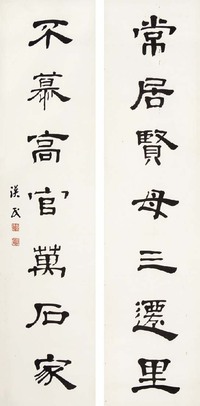 常居賢母三遷里
不慕高官萬石家
漢民